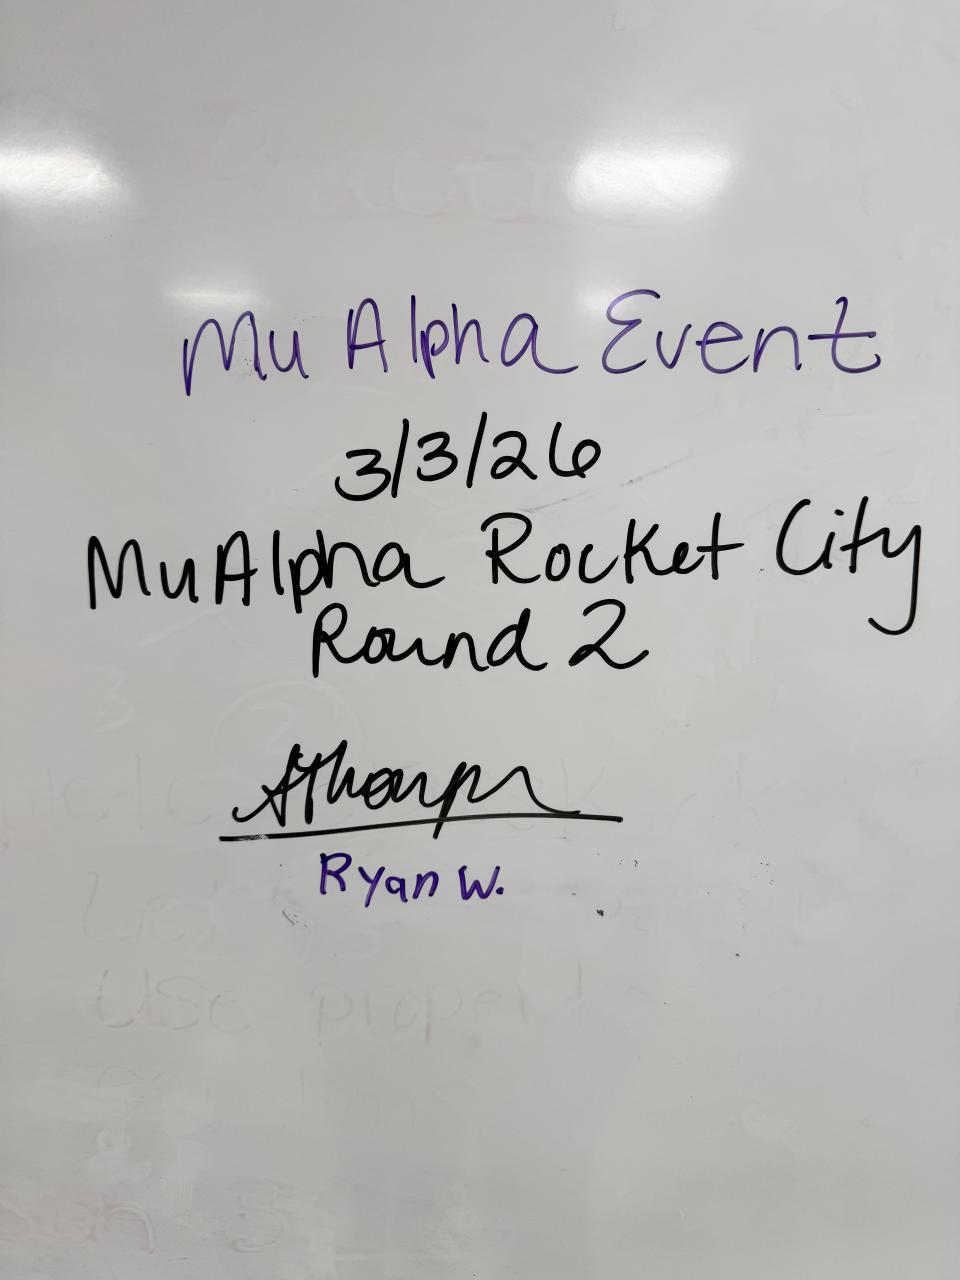 Mu Alpha Event
3/3/26
Mu Alpha Rocket City
Round 2
Ryan W.